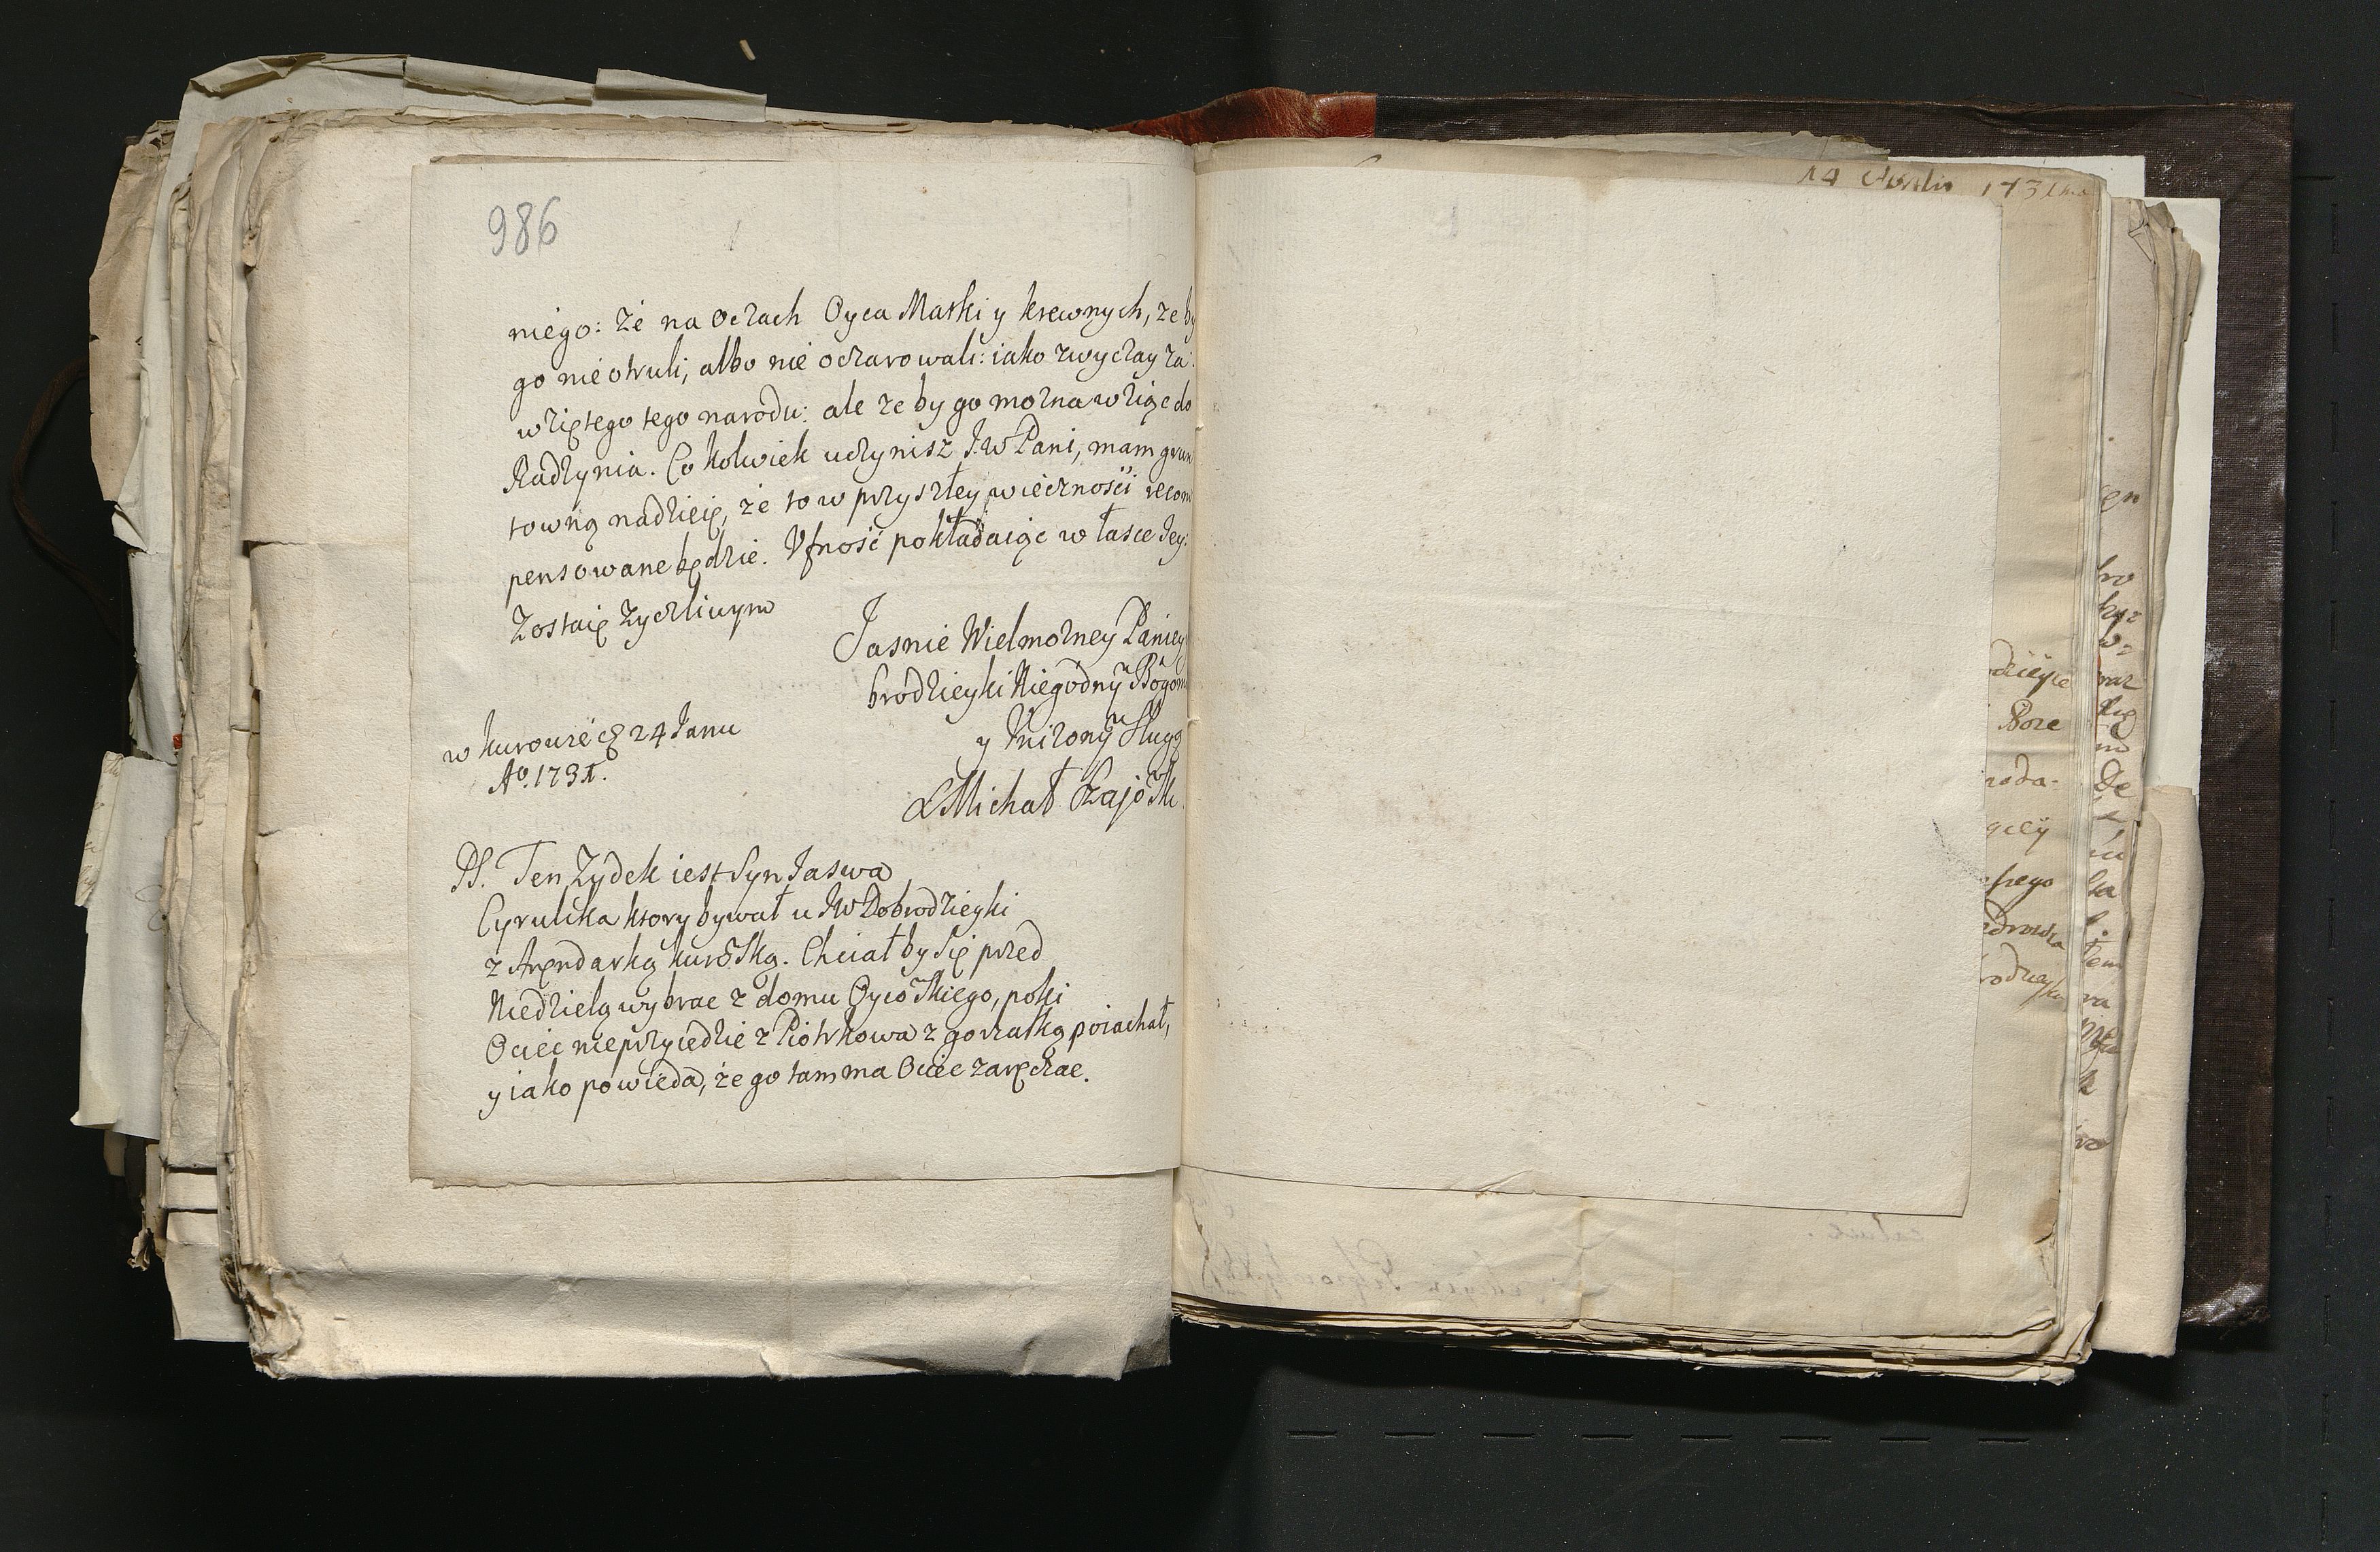 986
niego: że na oczach Oyca Matki y krewnych, że by
go nie otruli, albo nie oczarowali: iako zwyczay za:
wziętego tego narodu: ale że by go można wziąc do
Radzynia. Co kolwiek uczynisz J.W Pani, mam grun
towną nadzieię, że to w przyszłey wieczności recom
pensowane będzie. Ufność pokładaiąc w łasce Jey:
Zostaię Zyczliwym
Jasnie Wielmozney Paniey
brodzieyki Niegodny Bogom
y Unizony Sługą
w kurowie 24 Janu
Aᵒ. 1731.
XMichał
PS. Ten Zydek iest Syn Jaswa
Cyrulika ktory bywał u JW Dobrodzieyki
z Aręndarką kuroSką. Chciał by Się przed
Niedzielą wybrac z domu OycoSkiego, poki
Ociec nieprzyiedzie z Piotrkowa z gorzałką poiachał,
y iako powieda, że go tam ma Ociec zaręczac.
14 1731
odzieyce
Boze
roda-
szego